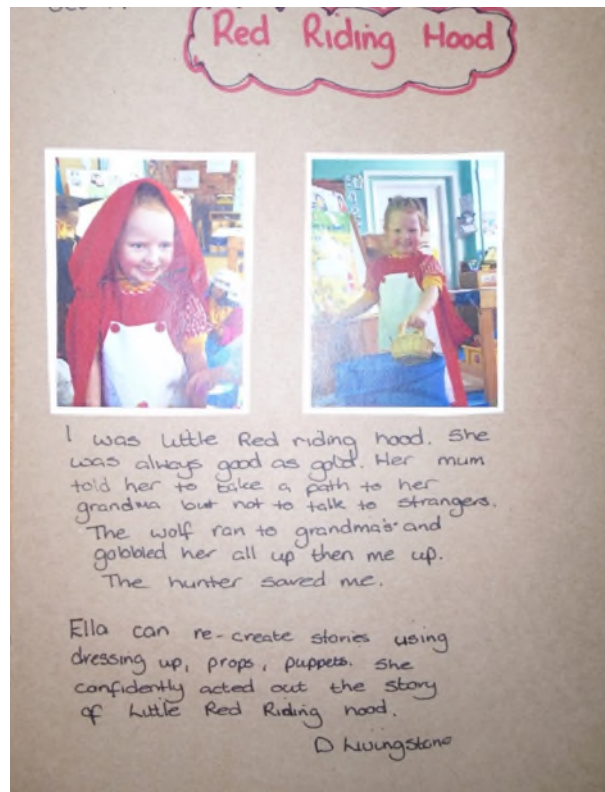 Red Riding Hood
I was Little Red riding hood. She
was always good as gold. Her mum
told her to take a path to her
grandma but not to talk to strangers.
The wolf ran to grandma's and
gobbled her all up then me up.
The hunter saved me.
Ella can re-create stories using
dressing up, props, puppets. She
confidently acted out the story
of Little Red Riding hood.
D Livingstone